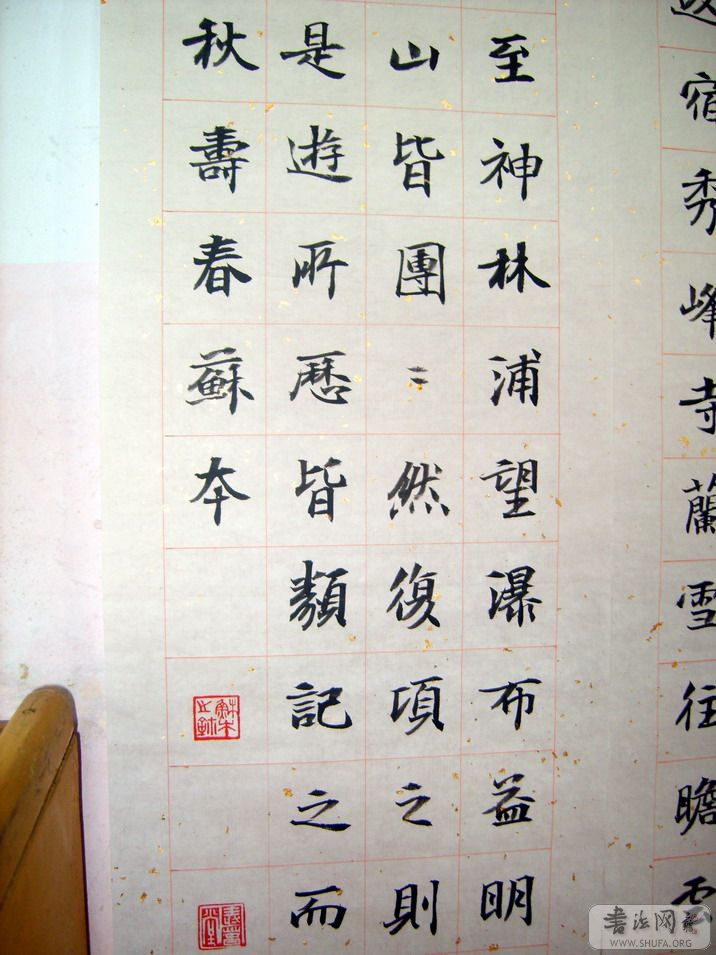 宿秀峰寺蘭雪往瞻
至神林浦望瀑布益明
山皆團〻然復項之則
是遊所歷皆類記之而
秋壽春蘇本
書法网
WWW.SHUFA.ORG